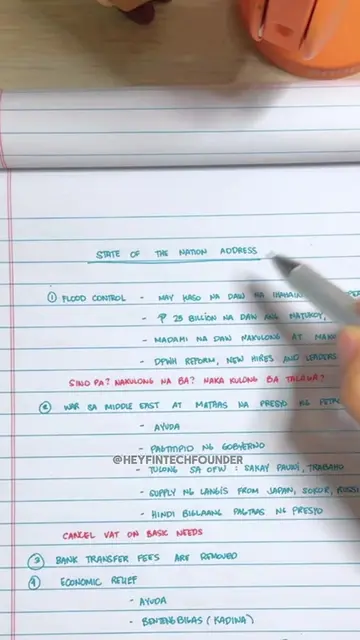 STATE OF THE NATION ADDRESS
① FLOOD CONTROL - MAY KASO NA DAW NA IHAHAIN
- ₱ 25 BILLION NA DAN ANG MATUKOY,
- MADAMI NA DAW MAKULONG AT
- DPWH REFORM, NEW HIRES AND LEADERS
SINO PA? NAKULONG NA BA? NAKA KULONG BA TALAGA?
② WAR SA MIDDLE EAST AT MATAAS NA PRESYO NG
- AYUDA
- PAGTITIPID NG GOBYERNO
@HEYFINTECHFOUNDER
- TULONG SA OFW : SAKAY PAUWI, TRABAHO
- SUPPLY NG LANGIS FROM JAPAN, SOKOR,
- HINDI BIGLAANG PAGTAAS NG PRESYO
CANCEL VAT ON BASIC NEEDS
③ BANK TRANSFER FEES ARE REMOVED
④ ECONOMIC RELIEF
- AYUDA
- BENTENG BIGAS (KADIWA)